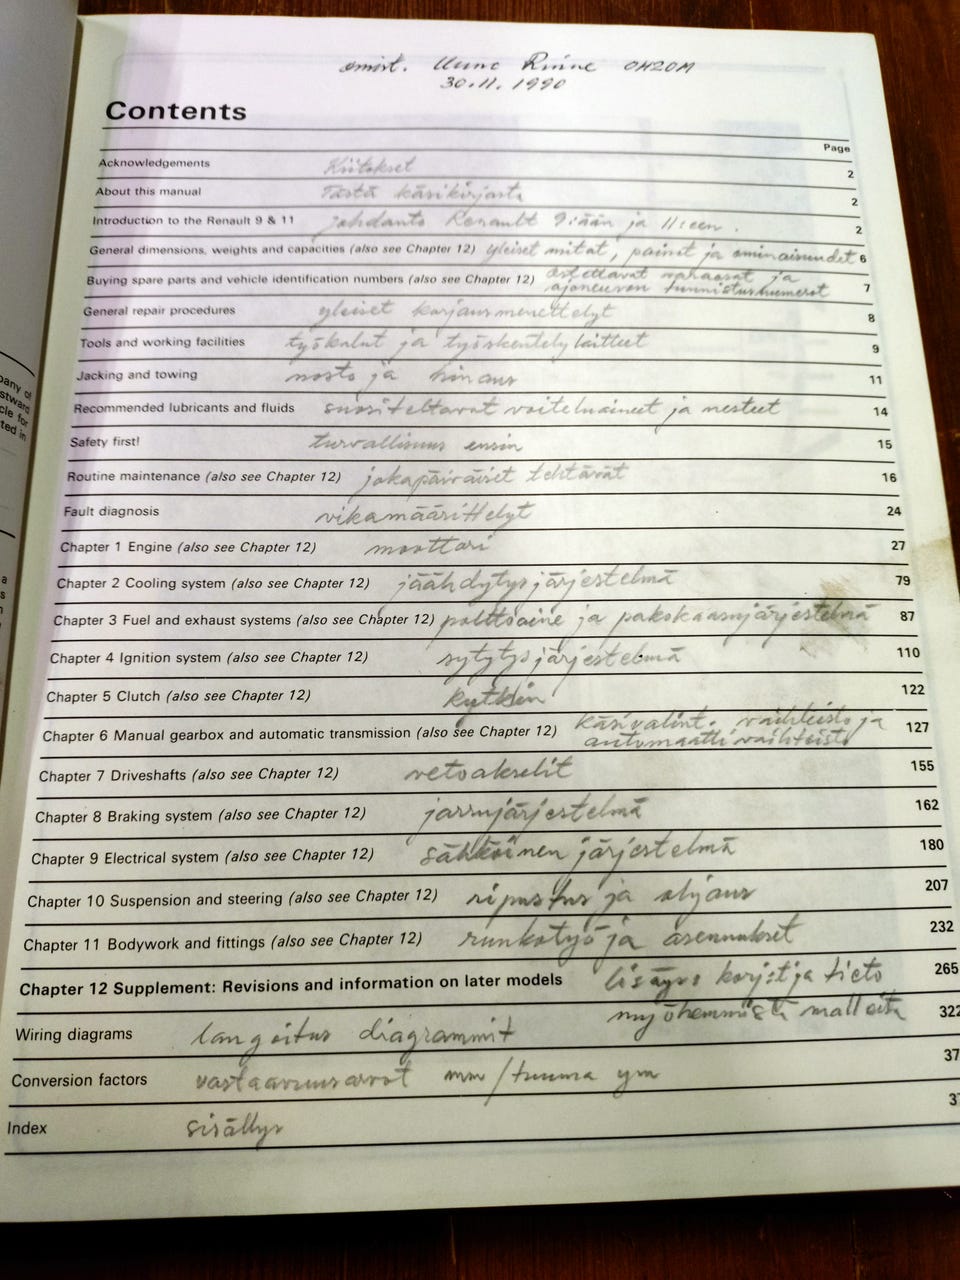 omist. Uuno Rinne OH2OM
30.11.1990
Contents
Page
Acknowledgements Kiitokset 2
About this manual Tästä käsikirjasta 2
Introduction to the Renault 9 & 11 johdanto Renault 9:ään ja 11:een. 2
General dimensions, weights and capacities (also see Chapter 12) yleiset mitat, painot ja ominaisuudet 6
Buying spare parts and vehicle identification numbers (also see Chapter 12) ostettavat varaosat ja 7
ajoneuvon tunnistusnumerot
General repair procedures yleiset korjausmenettelyt 8
Tools and working facilities työkalut ja työskentelylaitteet 9
Jacking and towing nosto ja hinaus 11
Recommended lubricants and fluids suositeltavat voiteluaineet ja nesteet 14
Safety first! turvallisuus ensin 15
Routine maintenance (also see Chapter 12) jokapäiväiset tehtävät 16
Fault diagnosis vikamäärittelyt 24
Chapter 1 Engine (also see Chapter 12) moottori 27
Chapter 2 Cooling system (also see Chapter 12) jäähdytysjärjestelmä 79
Chapter 3 Fuel and exhaust systems (also see Chapter 12) polttoaine ja pakokaasujärjestelmä 87
Chapter 4 Ignition system (also see Chapter 12) sytytysjärjestelmä 110
Chapter 5 Clutch (also see Chapter 12) kytkin 122
Chapter 6 Manual gearbox and automatic transmission (also see Chapter 12) käsivalint. vaihteisto ja 127
automaattivaihteisto
Chapter 7 Driveshafts (also see Chapter 12) vetoakselit 155
Chapter 8 Braking system (also see Chapter 12) jarrujärjestelmä 162
Chapter 9 Electrical system (also see Chapter 12) sähköinen järjestelmä 180
Chapter 10 Suspension and steering (also see Chapter 12) ripustus ja ohjaus 207
Chapter 11 Bodywork and fittings (also see Chapter 12) runkotyö ja asennukset 232
Chapter 12 Supplement: Revisions and information on later models lisäys: korj:t ja tieto 265
myöhemmistä malleista
Wiring diagrams langoitus diagrammit 322
Conversion factors vastaavuusarvot mm/tuuma ym 37
Index sisällys 37